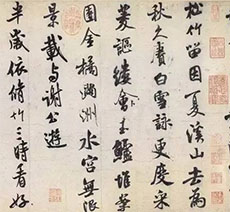 松竹留因夏溪山去為
秋久賡白雪詠更度采
菱謳縷會玉鱸堆案
團金橘滿洲水宮無限
景載与謝公遊
半歲依脩竹三時看好